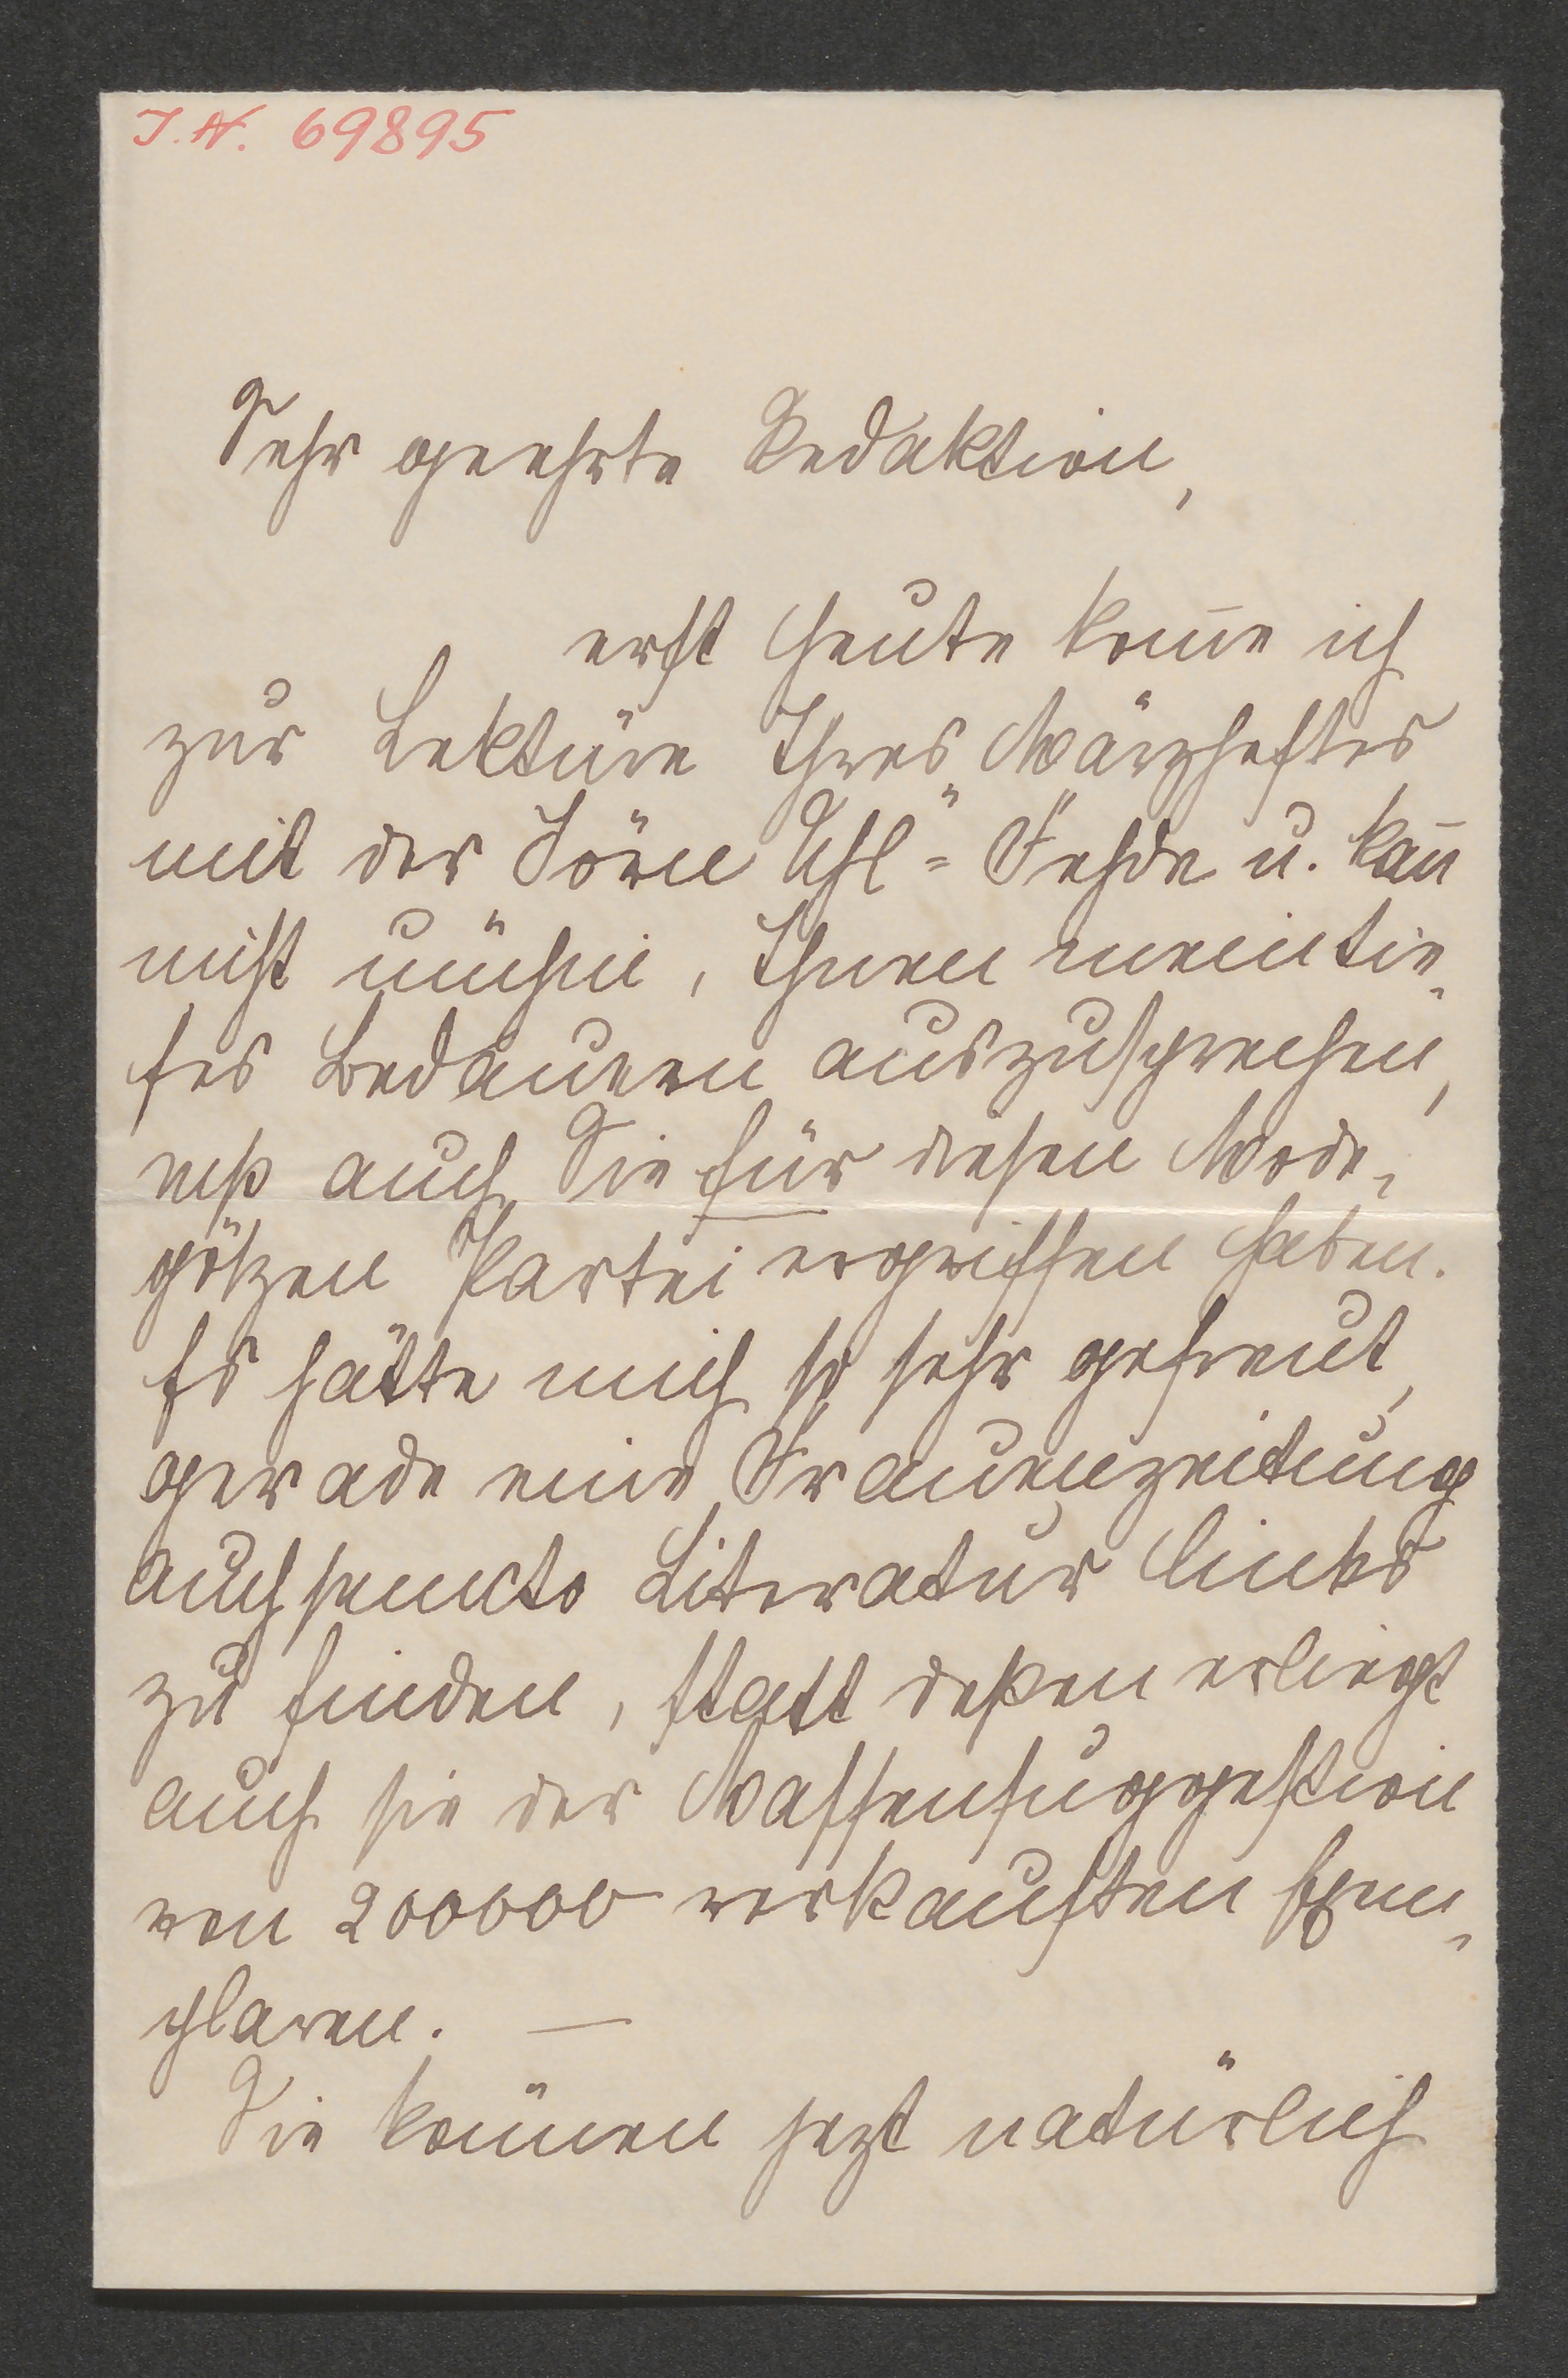 J. N. 69895
Sehr geehrte Redaktion,
erst heute kom̅e ich
zur Lektüre Ihres Märzheftes
mit der „Jörn Uhl"=Fehde u. kan̅
nicht umhin, Ihnen mein tie-
fes Bedauern auszusprechen,
daß auch Sie für diesen Mode-
götzen Partei ergriffen haben.
Es hätte mich so sehr gefreut,
gerade eine Frauenzeitung
auch puncto Literatur links
zu finden, statt deßen erliegt
auch sie der Massensuggestion
von 200000 verkauften Exem-
plaren. —
Sie können jezt natürlich